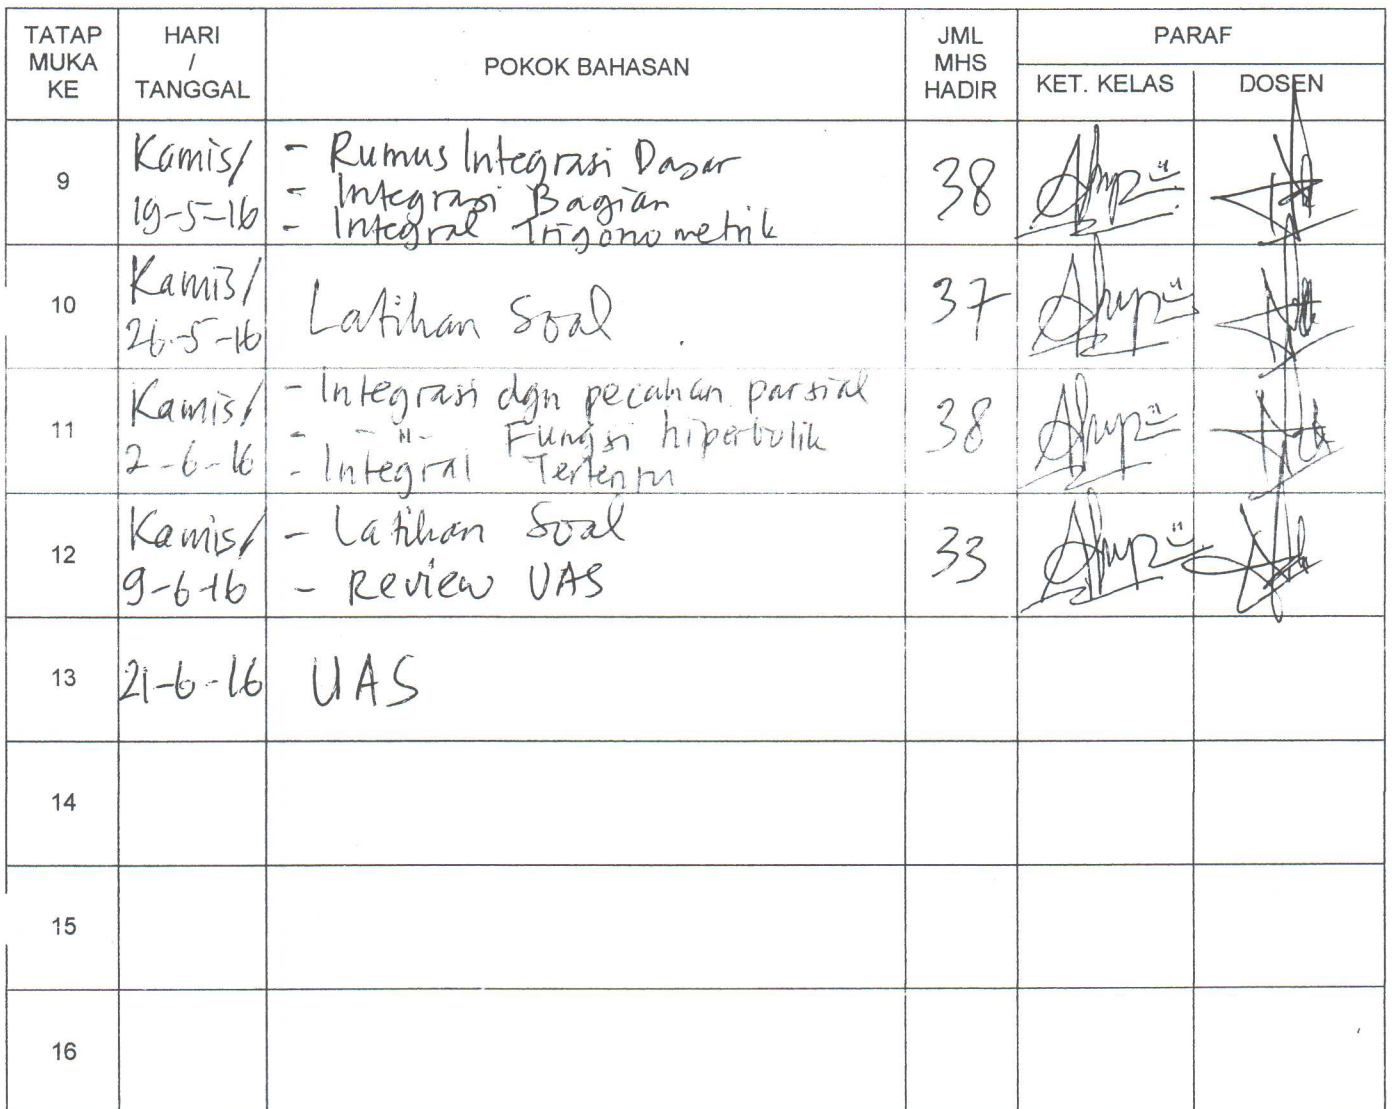 TATAP MUKA KE
HARI / TANGGAL
POKOK BAHASAN
JML MHS HADIR
PARAF
KET. KELAS
DOSEN
9
Kamis/
19-5-16
- Rumus Integrasi Dasar
- Integrasi Bagian
- Integral Trigonometrik
38
10
Kamis/
26-5-16
Latihan Soal
37
11
Kamis/
2-6-16
- Integrasi dgn pecahan parsial
- -"- Fungsi hiperbolik
- Integral Tertentu
38
12
Kamis/
9-6-16
- Latihan Soal
- Review UAS
33
13
21-6-16
UAS
14
15
16